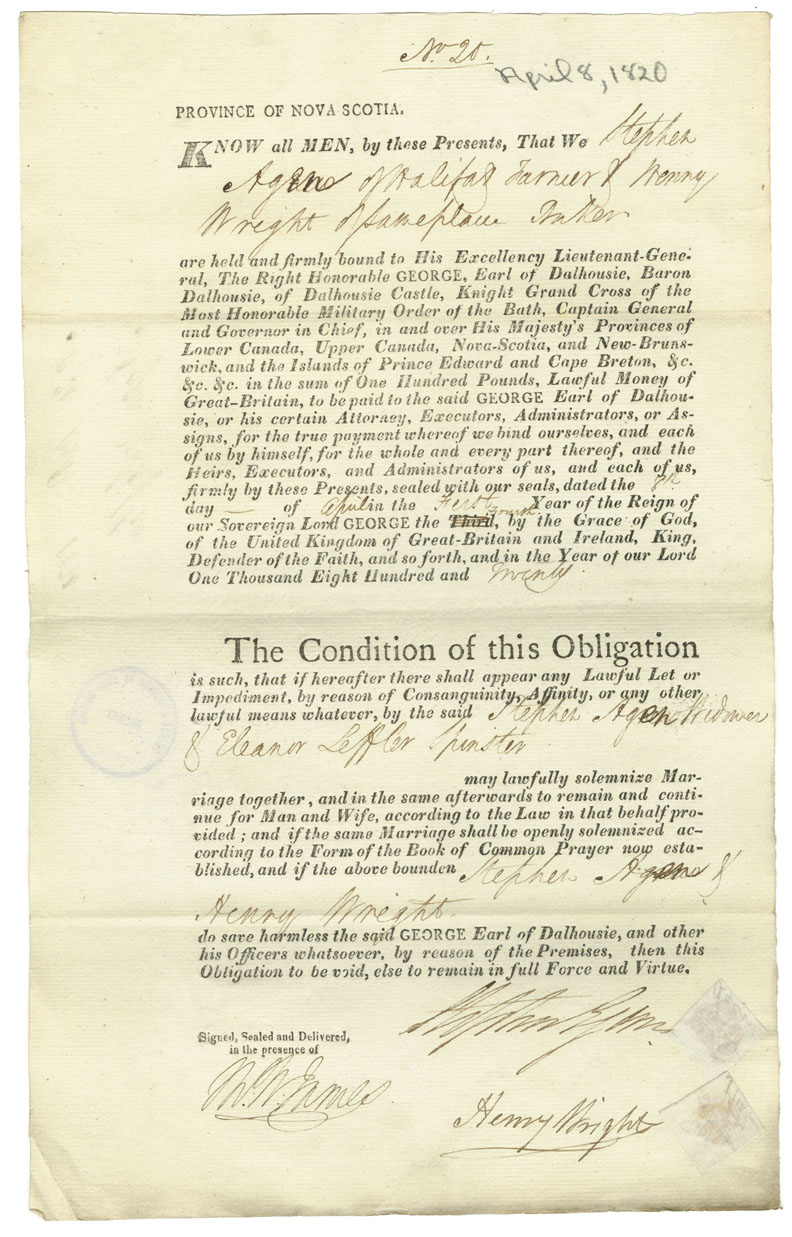 No 20.
April 8, 1820
PROVINCE OF NOVA SCOTIA.
KNOW all MEN, by these Presents, That We Stephen
Agen of Halifax & Henry
Wright of same place
are held and firmly bound to His Excellency Lieutenant-Gene-
ral, The Right Honorable GEORGE, Earl of Dalhousie, Baron
Dalhousie, of Dalhousie Castle, Knight Grand Cross of the
Most Honorable Military Order of the Bath, Captain General
and Governor in Chief, in and over His Majesty's Provinces of
Lower Canada, Upper Canada, Nova-Scotia, and New-Bruns-
wick, and the Islands of Prince Edward and Cape Breton, &c.
&c. &c. in the sum of One Hundred Pounds, Lawful Money of
Great-Britain, to be paid to the said GEORGE Earl of Dalhou-
sie, or his certain Attorney, Executors, Administrators, or As-
signs, for the true payment whereof we bind ourselves, and each
of us by himself, for the whole and every part thereof, and the
Heirs, Executors, and Administrators of us, and each of us,
firmly by these Presents, sealed with our seals, dated the 8th
day — of April in the First Year of the Reign of
our Sovereign Lord GEORGE the Third fourth, by the Grace of God,
of the United Kingdom of Great-Britain and Ireland, King,
Defender of the Faith, and so forth, and in the Year of our Lord
One Thousand Eight Hundred and Twenty.
The Condition of this Obligation
is such, that if hereafter there shall appear any Lawful Let or
Impediment, by reason of Consanguinity, Affinity, or any other
lawful means whatever, by the said Stephen Agen Widower
& Eleanor Leffler Spinster
may lawfully solemnize Mar-
riage together, and in the same afterwards to remain and conti-
nue for Man and Wife, according to the Law in that behalf pro-
vided; and if the same Marriage shall be openly solemnized ac-
cording to the Form of the Book of Common Prayer now esta-
blished, and if the above bounden Stephen Agen &
Henry Wright.
do save harmless the said GEORGE Earl of Dalhousie, and other
his Officers whatsoever, by reason of the Premises, then this
Obligation to be void, else to remain in full Force and Virtue.
Signed, Sealed and Delivered,
in the presence of
James
Henry Wright